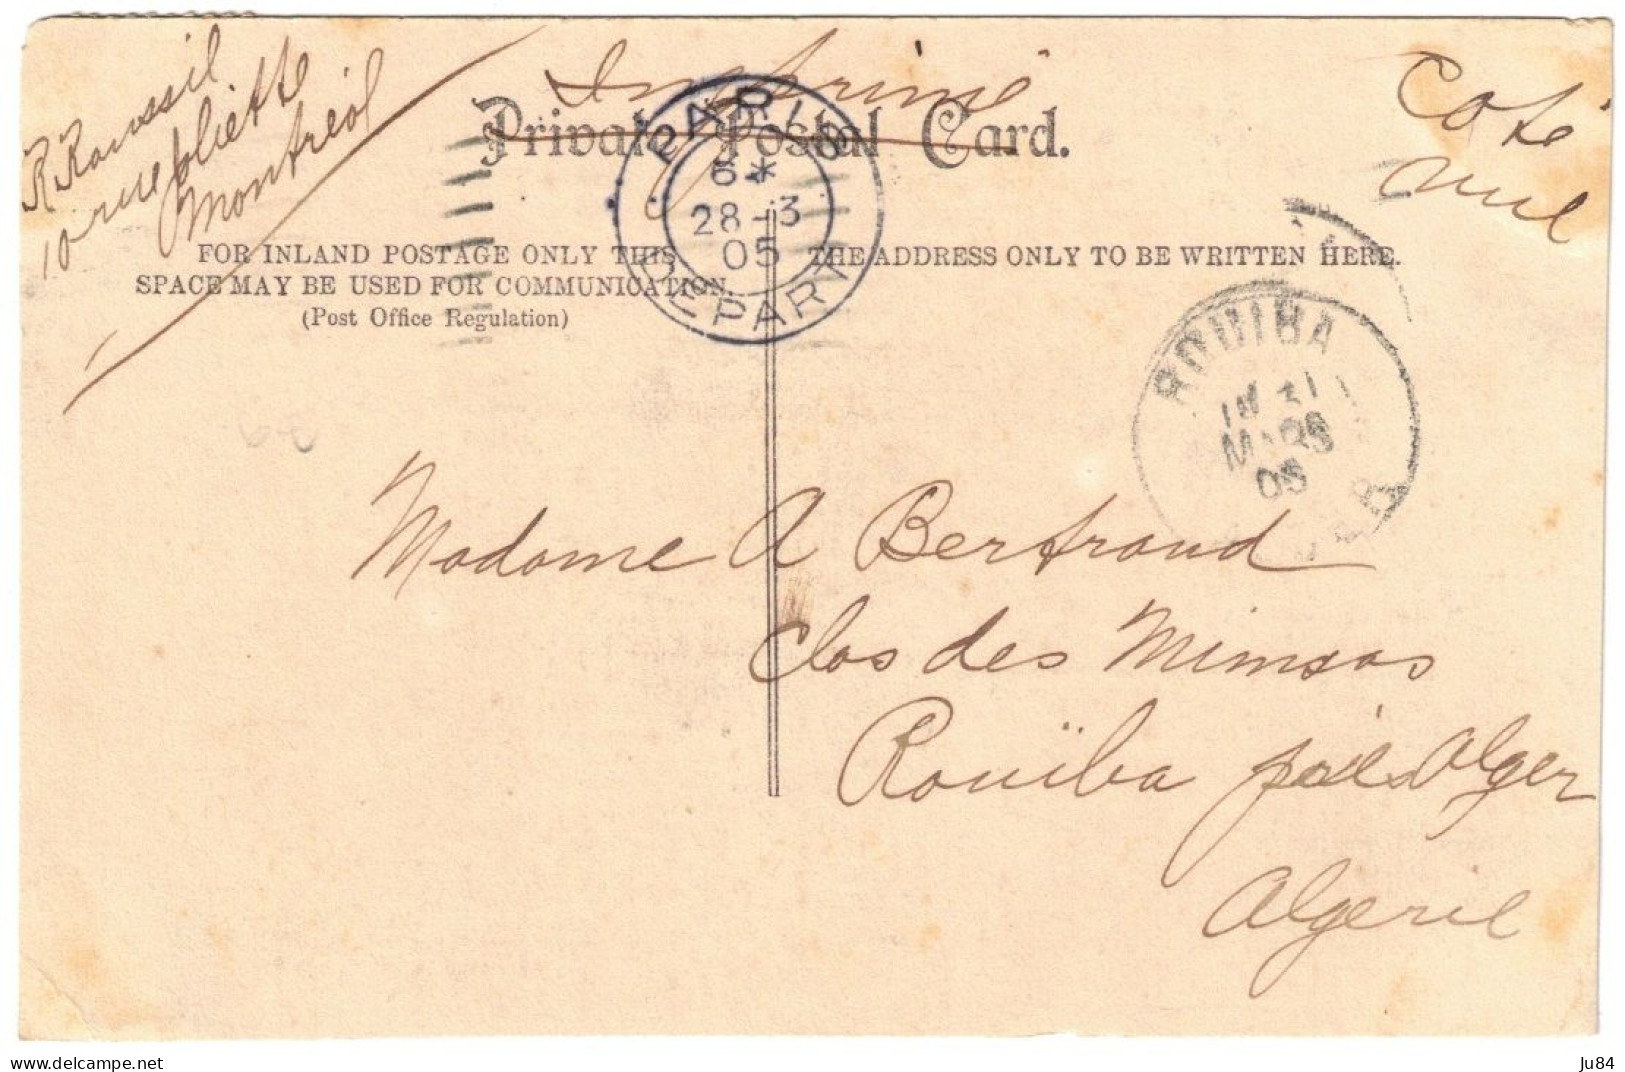 R Roussil
10 rue joliette
Montréal
Imprimé
Coté
nul
Private Postal Card.
FOR INLAND POSTAGE ONLY THIS
SPACE MAY BE USED FOR COMMUNICATION.
(Post Office Regulation)
THE ADDRESS ONLY TO BE WRITTEN HERE.
PARIS
6*
28-3
05
DEPART
ROUIBA
31
MARS
05
Madame A Bertrand
Clos des Mimosas
Rouïba près Alger
Algerie
Ju84